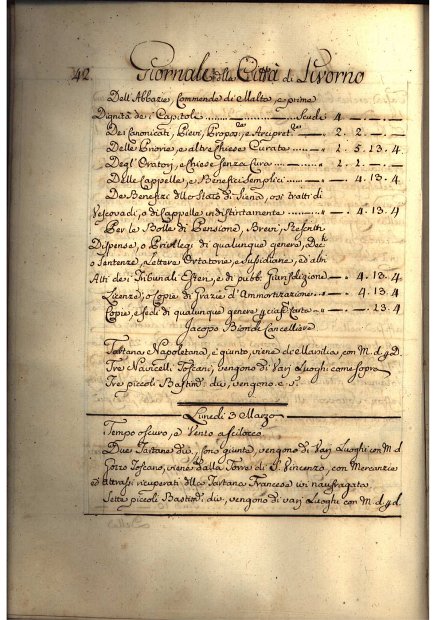 42 Giornale della Città di Livorno
Dell'Abbazie, Commende di Malta, e prime
Dignità de i Capitoli Scudi 4 — . —
De i Canonicati, Pievi, Propos.e, e Arcipret.e 2. 2. — . —
Delle Priorie, e altre Chiese Curate 1. 5. 13. 4
Degl'Oratorj, e Chiese senza Cura 1. 2. — . —
Delle Cappelle, e Benefizi Semplici — . 4. 13. 4
De Benefizi dello Stato di Siena, o si tratti di
Vescovadi, o di Cappelle indistintamente — . 4. 13. 4
Per le Bolle di Pensione, Brevi, Rescritti
Dispense, o Privilegi di qualunque genere,
o Sentenze, Lettere Ortatorie, e Susidiane, ed altri
Atti de i Tribunali Esteri, e di pubb. Giurisdizione — . 4. 13. 4
Licenze, o Copie di Grazie d'Ammortizazione — . 4. 13. 4
Copie, e fedi di qualunque genere Carta — . — 13. 4
Jacopo Biondi Cancelliere
Tartana Napoletana, è giunta, viene di Marsilia con M. d. 4 D.
Tre Navicelli Toscani, vengono da Varj Luoghi come sopra
Tre piccoli Bastim. div. vengono e s.
Lunedì 3 Marzo
Tempo oscuro, e Vento a scilocco
Due Tartane div., sono giunte, vengono di Varj Luoghi con M. d
Gozzo Toscano, viene dalla Torre di S. Vincenzo, con Mercanzie
ed attrassi ricuperati dalla Tartana Francese ivi naufragata
Sette piccoli Bastim. div., vengono di varj Luoghi con M. d. 4 d.